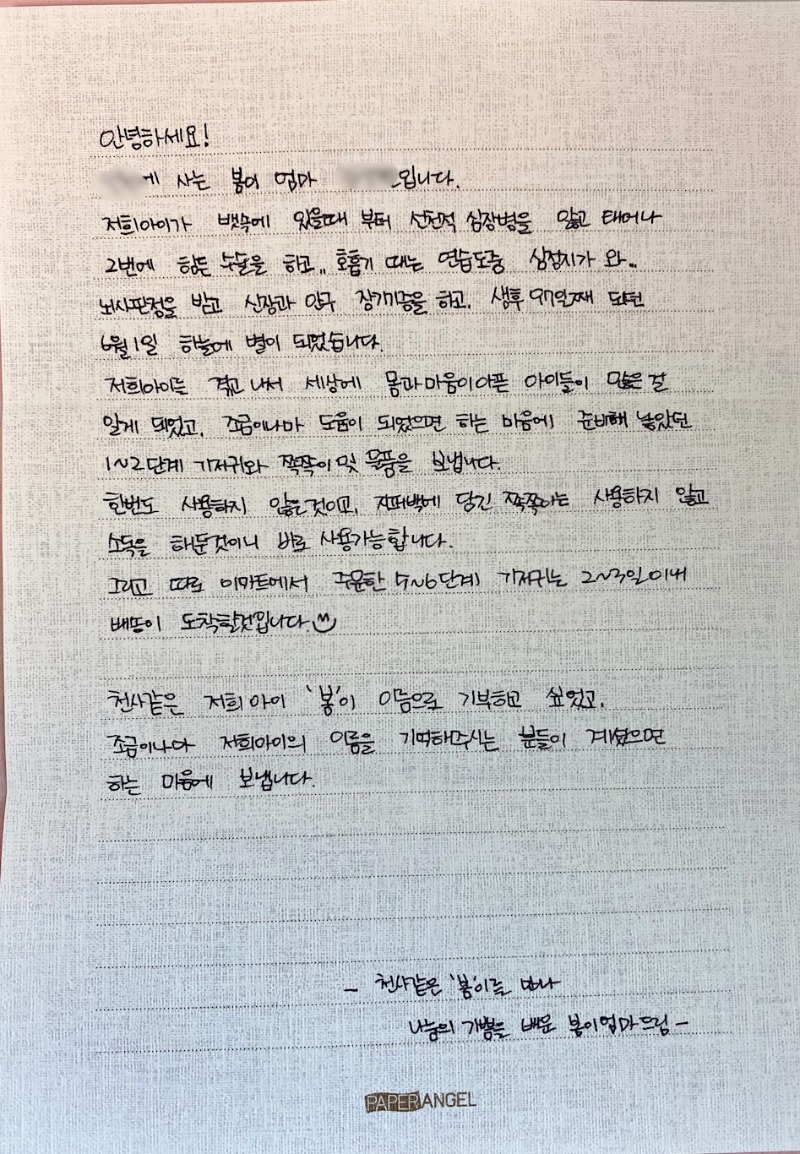 안녕하세요!
에 사는 봄이 엄마 입니다.
저희아이가 뱃속에 있을때 부터 선천적 심장병을 앓고 태어나
2번에 힘든 수술을 하고.. 호흡기 떼는 연습도중 심정지가 와..
뇌사판정을 받고 신장과 안구 장기기증을 하고. 생후 97일째 되던
6월 1일 하늘에 별이 되었습니다.
저희아이를 겪고 나서 세상에 몸과마음이아픈 아이들이 많은걸
알게 되었고, 조금이나마 도움이 되었으면 하는 마음에 준비해 놓았던
1~2단계 기저귀와 쪽쪽이 및 물품을 보냅니다.
한번도 사용하지 않은것이고, 지퍼백에 담긴 쪽쪽이는 사용하지 않고
소독을 해둔것이니 바로 사용가능합니다.
그리고 따로 이마트에서 주문한 5~6단계 기저귀는 2~3일이내
배송이 도착할것입니다
천사같은 저희 아이 '봄'이 이름으로 기부하고 싶었고,
조금이나마 저희아이의 이름을 기억해주시는 분들이 계셨으면
하는 마음에 보냅니다.
- 천사같은 '봄'이를 만나
나눔의 기쁨을 배운 봄이엄마드림 -
PAPER ANGEL